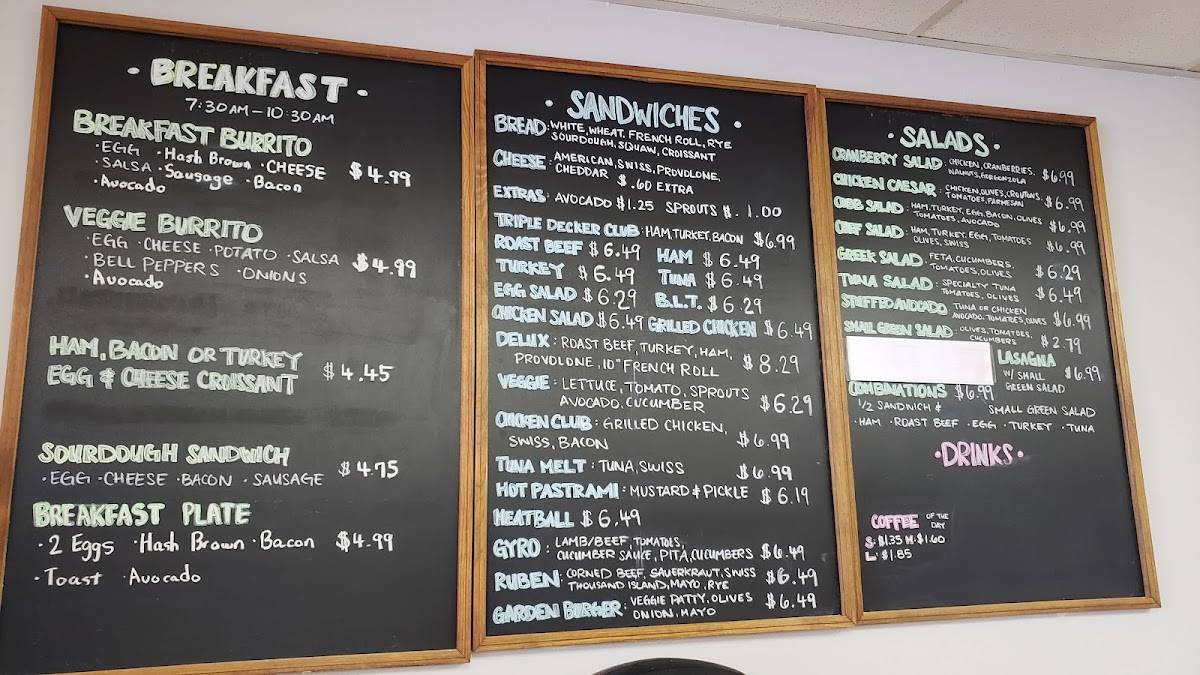 • BREAKFAST •
7:30AM - 10:30AM
BREAKFAST BURRITO
• EGG • Hash Brown • CHEESE $4.99
• SALSA • Sausage • Bacon
• Avocado
VEGGIE BURRITO
• EGG • CHEESE • POTATO • SALSA $4.99
• BELL PEPPERS • ONIONS
• Avocado
HAM, BACON OR TURKEY
EGG & CHEESE CROISSANT $4.45
SOURDOUGH SANDWICH
• EGG • CHEESE • BACON • SAUSAGE $4.75
BREAKFAST PLATE
• 2 Eggs • Hash Brown • Bacon $4.99
• Toast • Avocado
• SANDWICHES •
BREAD: WHITE, WHEAT, FRENCH ROLL, RYE
SOURDOUGH, SQUAW, CROISSANT
CHEESE: AMERICAN, SWISS, PROVOLONE,
CHEDDAR $.60 EXTRA
EXTRAS: AVOCADO $1.25 SPROUTS $.1.00
TRIPLE DECKER CLUB: HAM, TURKEY, BACON $6.99
ROAST BEEF $6.49 HAM $6.49
TURKEY $6.49 TUNA $6.49
EGG SALAD $6.29 B.L.T. $6.29
CHICKEN SALAD $6.49 GRILLED CHICKEN $6.49
DELUX: ROAST BEEF, TURKEY, HAM,
PROVOLONE, 10" FRENCH ROLL $8.29
VEGGIE: LETTUCE, TOMATO, SPROUTS
AVOCADO, CUCUMBER $6.29
CHICKEN CLUB: GRILLED CHICKEN,
SWISS, BACON $6.99
TUNA MELT: TUNA, SWISS $6.99
HOT PASTRAMI: MUSTARD & PICKLE $6.19
MEATBALL $6.49
GYRO: LAMB/BEEF, TOMATOES,
CUCUMBER SAUCE, PITA, CUCUMBERS $6.49
RUBEN: CORNED BEEF, SAUERKRAUT, SWISS $6.49
THOUSAND ISLAND, MAYO, RYE
GARDEN BURGER: VEGGIE PATTY, OLIVES $6.49
ONION, MAYO
• SALADS •
CRANBERRY SALAD: CHICKEN, CRANBERRIES, $6.99
WALNUTS, GORGONZOLA
CHICKEN CAESAR: CHICKEN, OLIVES, CROUTONS, $6.99
TOMATOES, PARMESAN
COBB SALAD: HAM, TURKEY, EGG, BACON, OLIVES $6.99
TOMATOES, AVOCADO
CHEF SALAD: HAM, TURKEY, EGG, TOMATOES $6.99
OLIVES, SWISS
GREEK SALAD: FETA, CUCUMBERS, $6.29
TOMATOES, OLIVES
TUNA SALAD: SPECIALTY TUNA $6.49
TOMATOES, OLIVES
STUFFED AVOCADO TUNA OR CHICKEN $6.99
AVOCADO, TOMATOES, OLIVES
SMALL GREEN SALAD: OLIVES, TOMATOES, $2.79
CUCUMBERS
LASAGNA
W/ SMALL $6.99
GREEN SALAD
COMBINATIONS $6.99
1/2 SANDWICH & SMALL GREEN SALAD
• HAM • ROAST BEEF • EGG • TURKEY • TUNA
• DRINKS •
COFFEE OF THE
DAY
S: $1.35 M: $1.60
L: $1.85